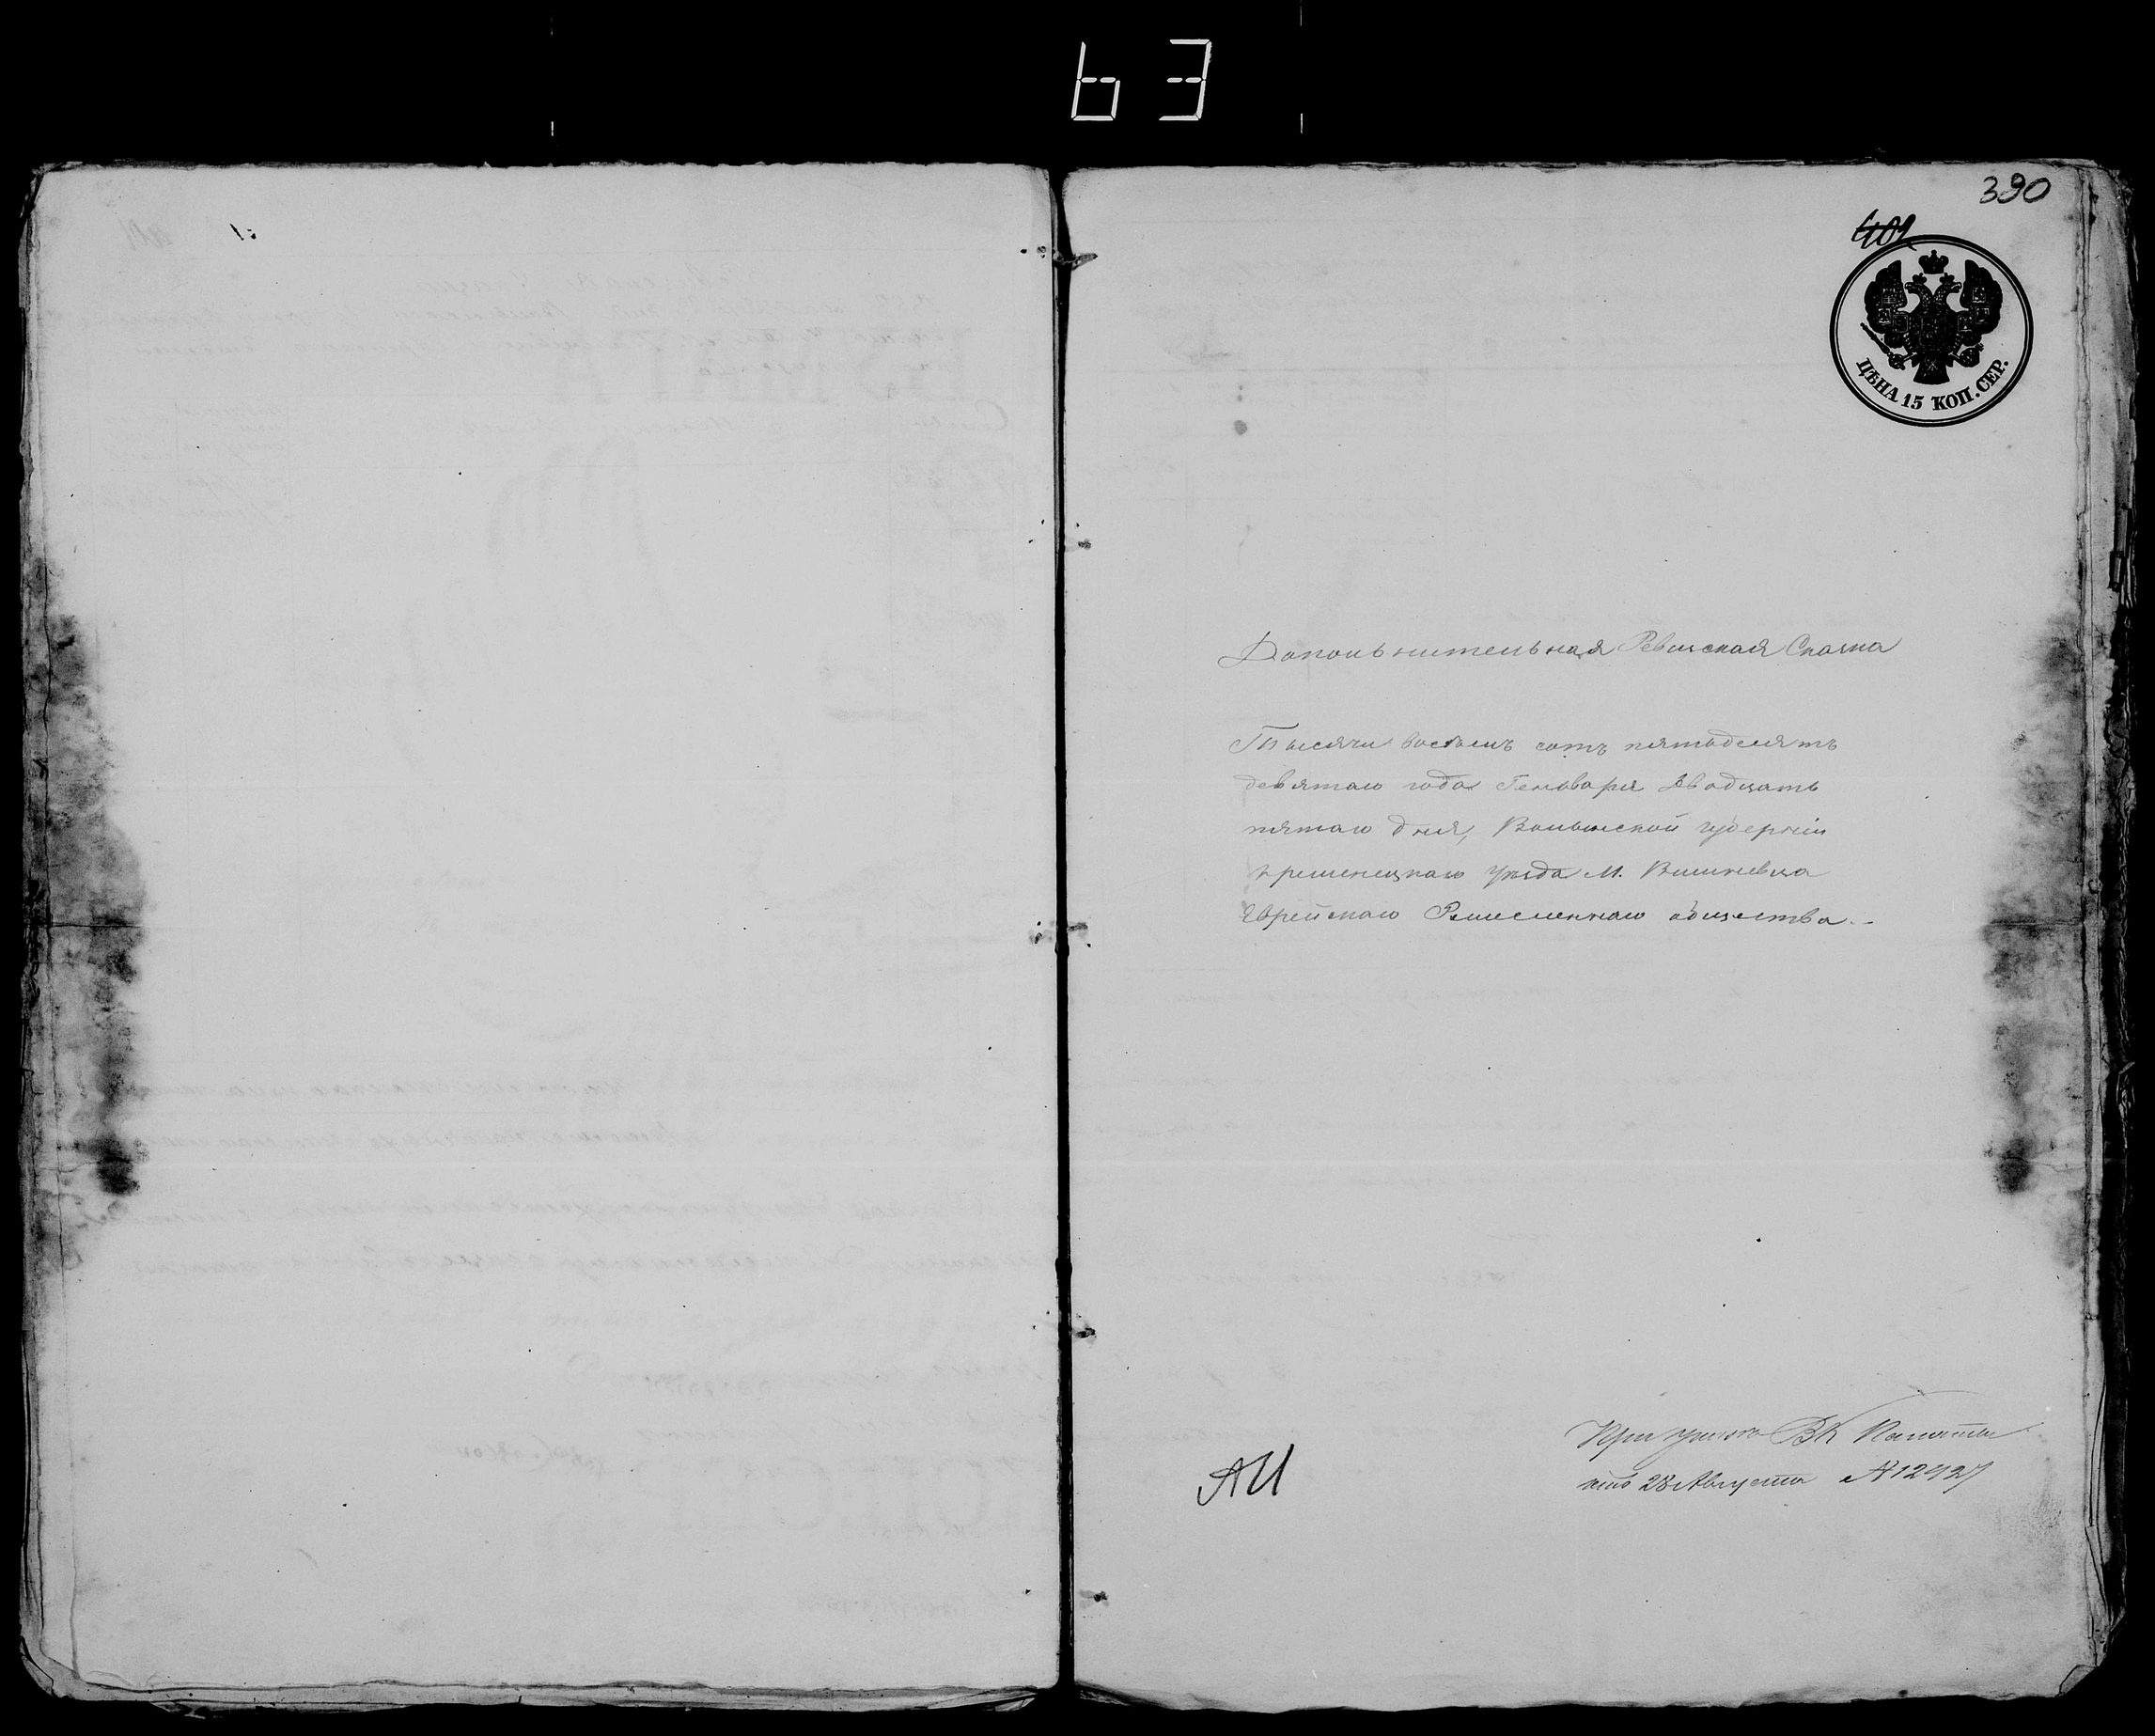 63
390
401
ЦѢНА 15 КОП. СЕР.
Дополнительная Ревизская Сказка
Тысячи восемь сотъ пятьдесятъ
девятаго года Генваря двадцать
пятаго дня, Волынской губерніи
Кременецкаго уѣзда М. Вишневца
Еврейскаго Ремесленнаго общества.
При указѣ ВК Палаты
отъ 28 Августа №12427
АИ